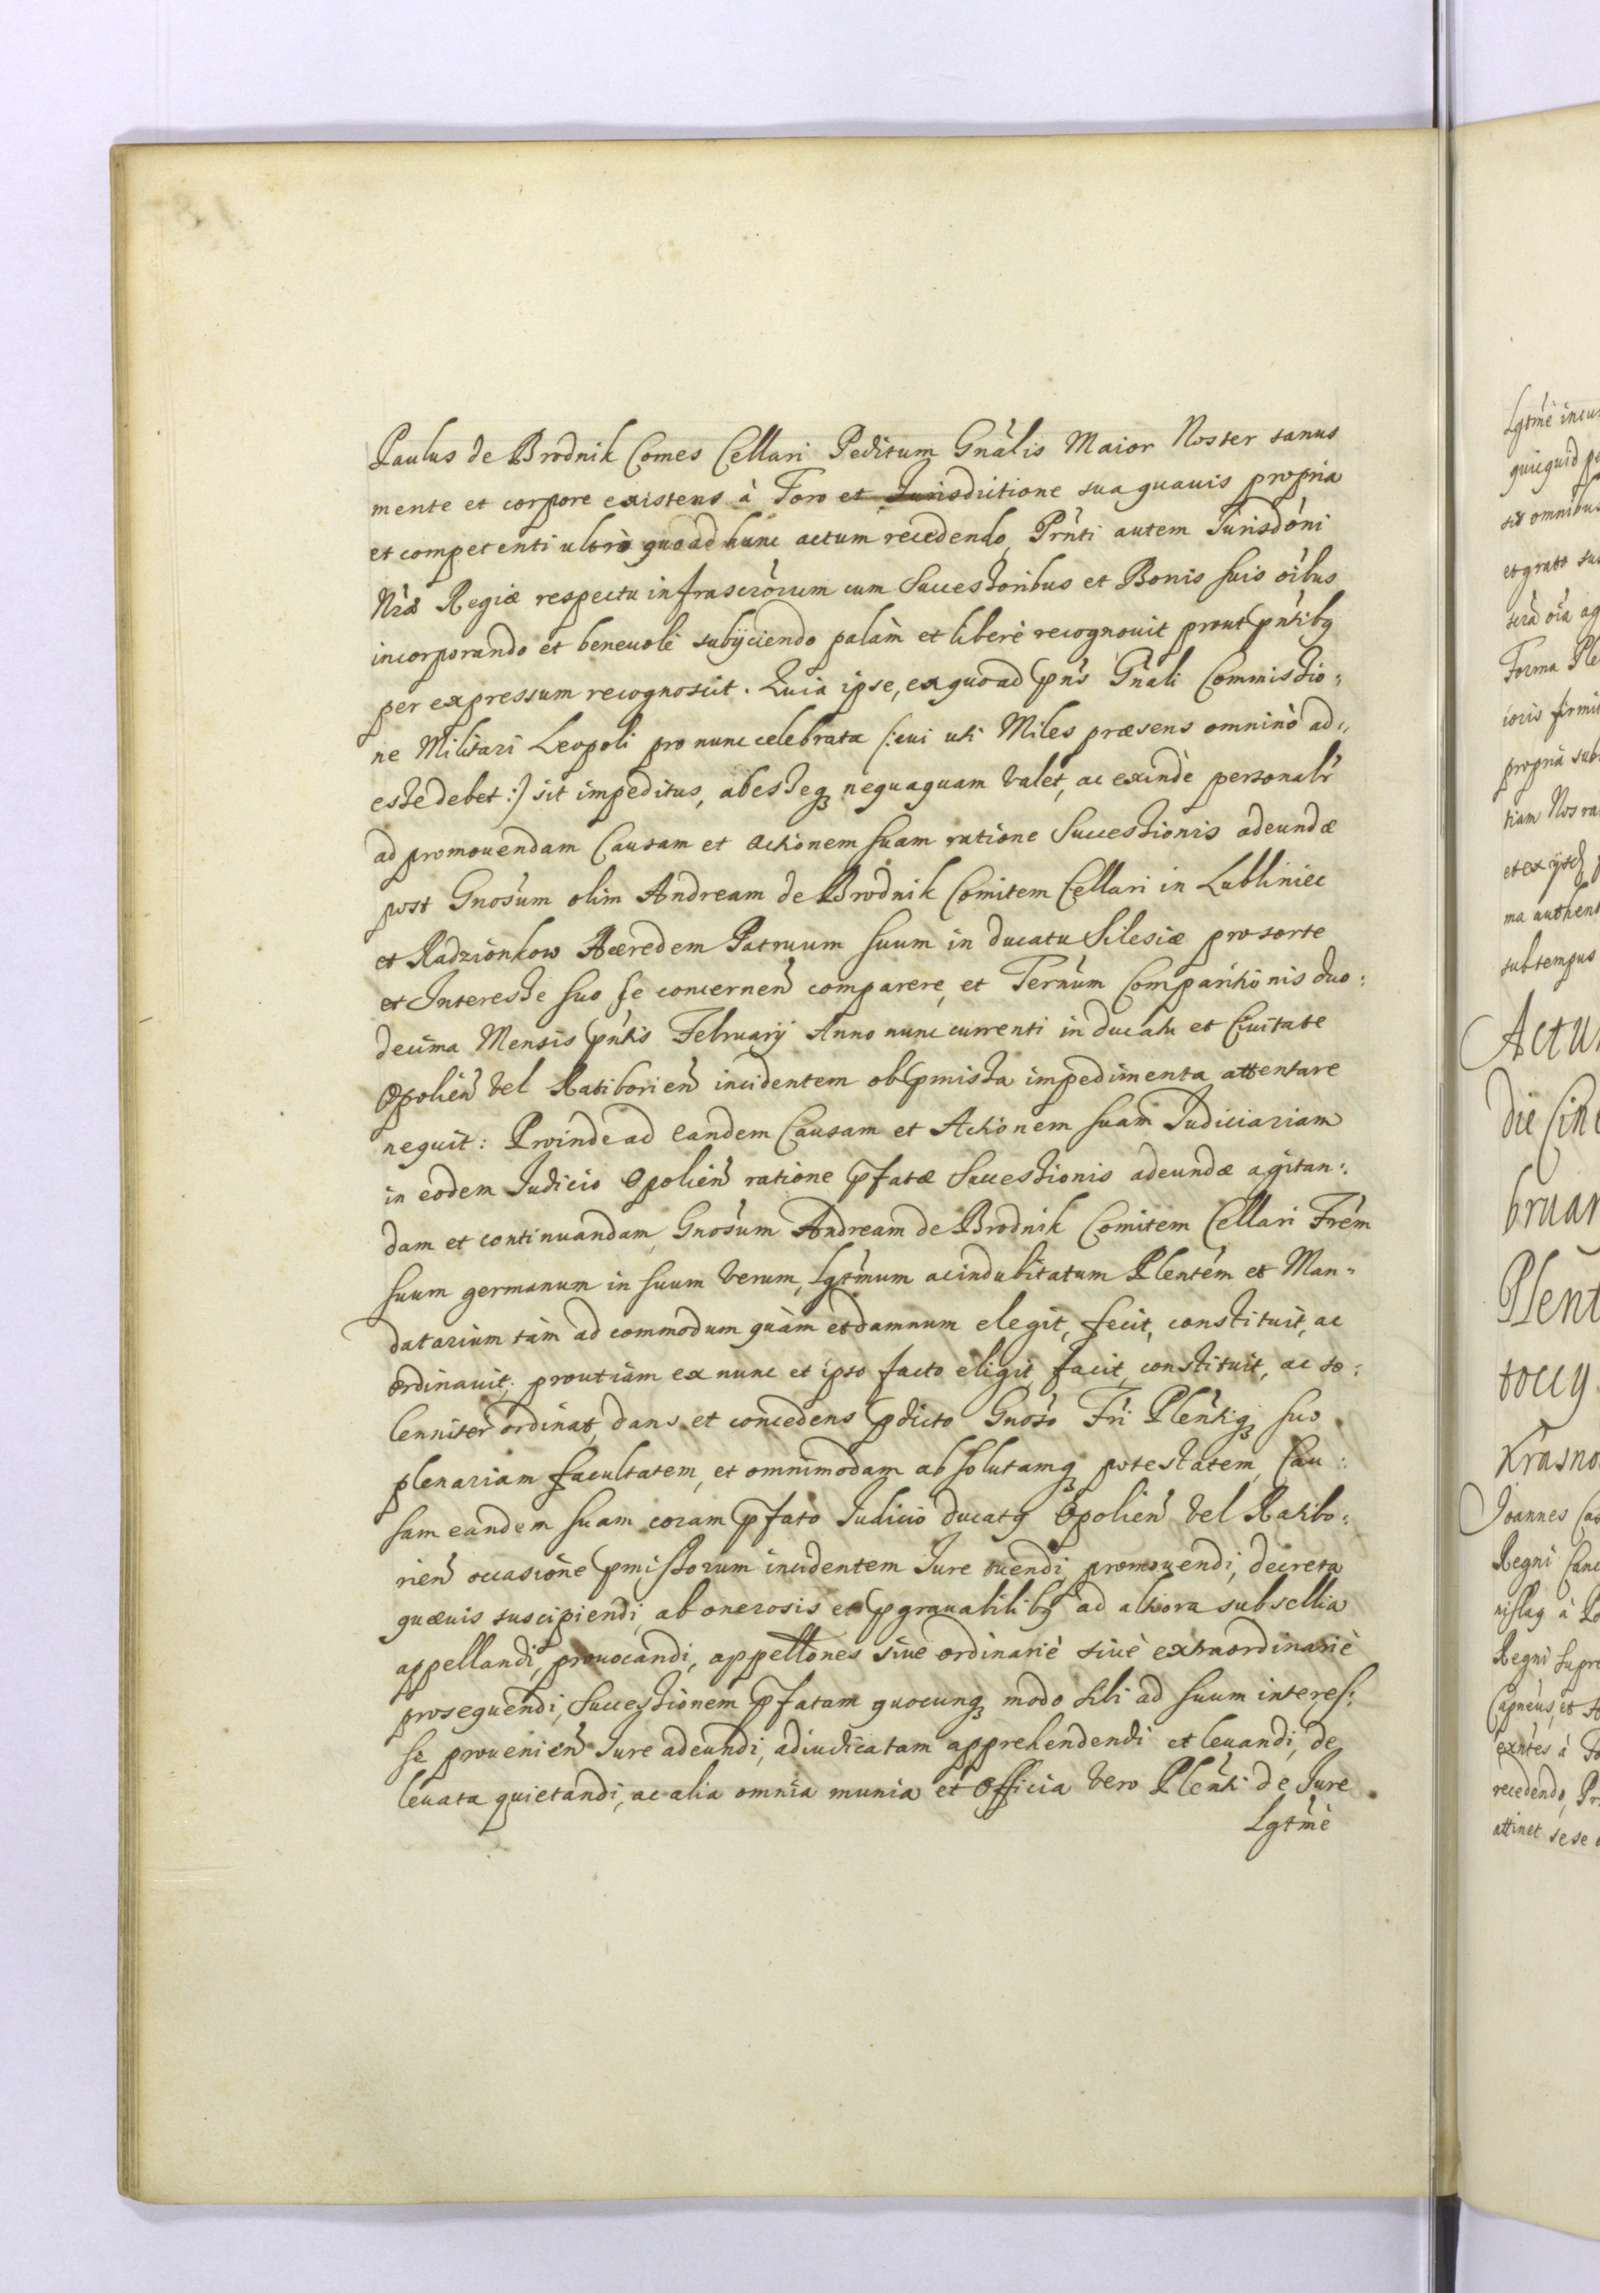 Paulus de Brodnik Comes Cellari Peditum Gnâlis Maior Noster sanus
mente et corpore existens à Foro et Jurisdictione sua quavis propria
et competenti ultrò quoad hunc actum recedendo, Prñti autem Jurisdóni
Nrã Regiæ respectu infrascrórum cum Successoribus et Bonis suis oibus
incorporando et benevolè subÿciendo palàm et liberè recognovit prout pntibq
per expressum recognoscit. Quia ipse, ex quo ad pñs Gñali Commissio:
ne Militari Leopoli pro nunc celebrata /:cui uti Miles præsens omninò ad:
esse debet:/ sit impeditus, abesseq nequaquam valet, ac exindè personalr
ad promovendam Causam et actionem suam ratione Successionis adeundæ
post Gnosum olim Andream de Brodnik Comitem Cellari in Lubliniec
et Radzionkow Hæredem Patruum suum in ducatu Silesiæ pro sorte
et Interesse suo se concernen comparere, et Ternum Comparitionis duo:
decima Mensis pntis February Anno nunc currenti in ducatu et Civitate
Opolien vel Ratiborien incidentem ob pmissa impedimenta attentare
nequit: Proinde ad eandem Causam et Actionem suam Judiciariam
in eodem Judicio Opolien ratione pfatæ Successionis adeundæ agitan:
dam et continuandam, Gnosum Andream de Brodnik Comitem Cellari Frém
suum germanum in suum verum, Lgtmum ac indubitatum Plentém et Man:
datarium tàm ad commodum quàm et damnum elegit, fecit, constituit, ac
ordinavit; prout iàm ex nunc et ipso facto eligit, facit, constituit, ac so:
lenniter ordinat, dans et concedens pdicto Gnoso Fri Plentiq suo
plenariam facultatem, et omnimodam absolutamq potestatem, Cau:
sam eandem suam coram pfato Judicio ducatq Opolien vel Ratibo:
rien occasione pmissorum incidentem Jure tuendi, promovendi, decreta
quævis suscipiendi, ab onerosis et pgravabilibq ad altiora subsellia
appellandi, provocandi, appellones sive ordinariè sivè extraordinariè
prosequendi, Successionem pfatam quocunq modo sibi ad suum interes:
se provenien Jure adeundi, adiudicatam apprehendendi et levandi, de
levata quietandi, ac alia omnia munia et Officia vero Plenti de Jure
Lgtmè
Actu
bruar
Plent
toccy
Krasno
Joannes Cas
Regni Canc
Regni supre
recedendo, Pr
attinet sese
Forma Ple
ioris firmi
propria sub
ma authent
sub tempus